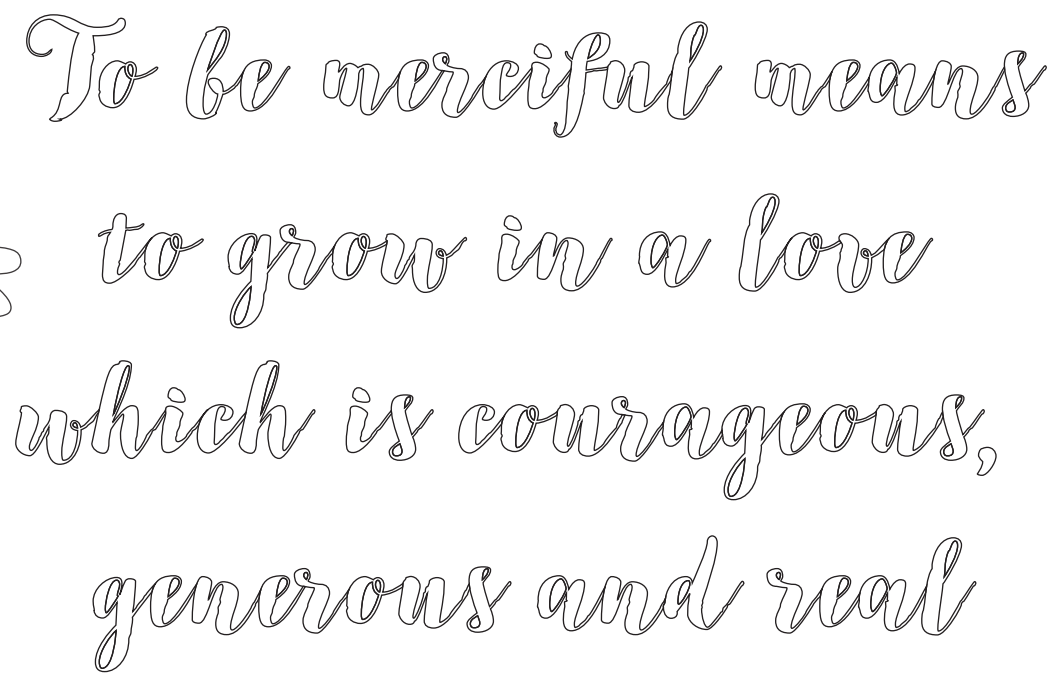 To be merciful means
to grow in a love
which is courageous,
generous and real